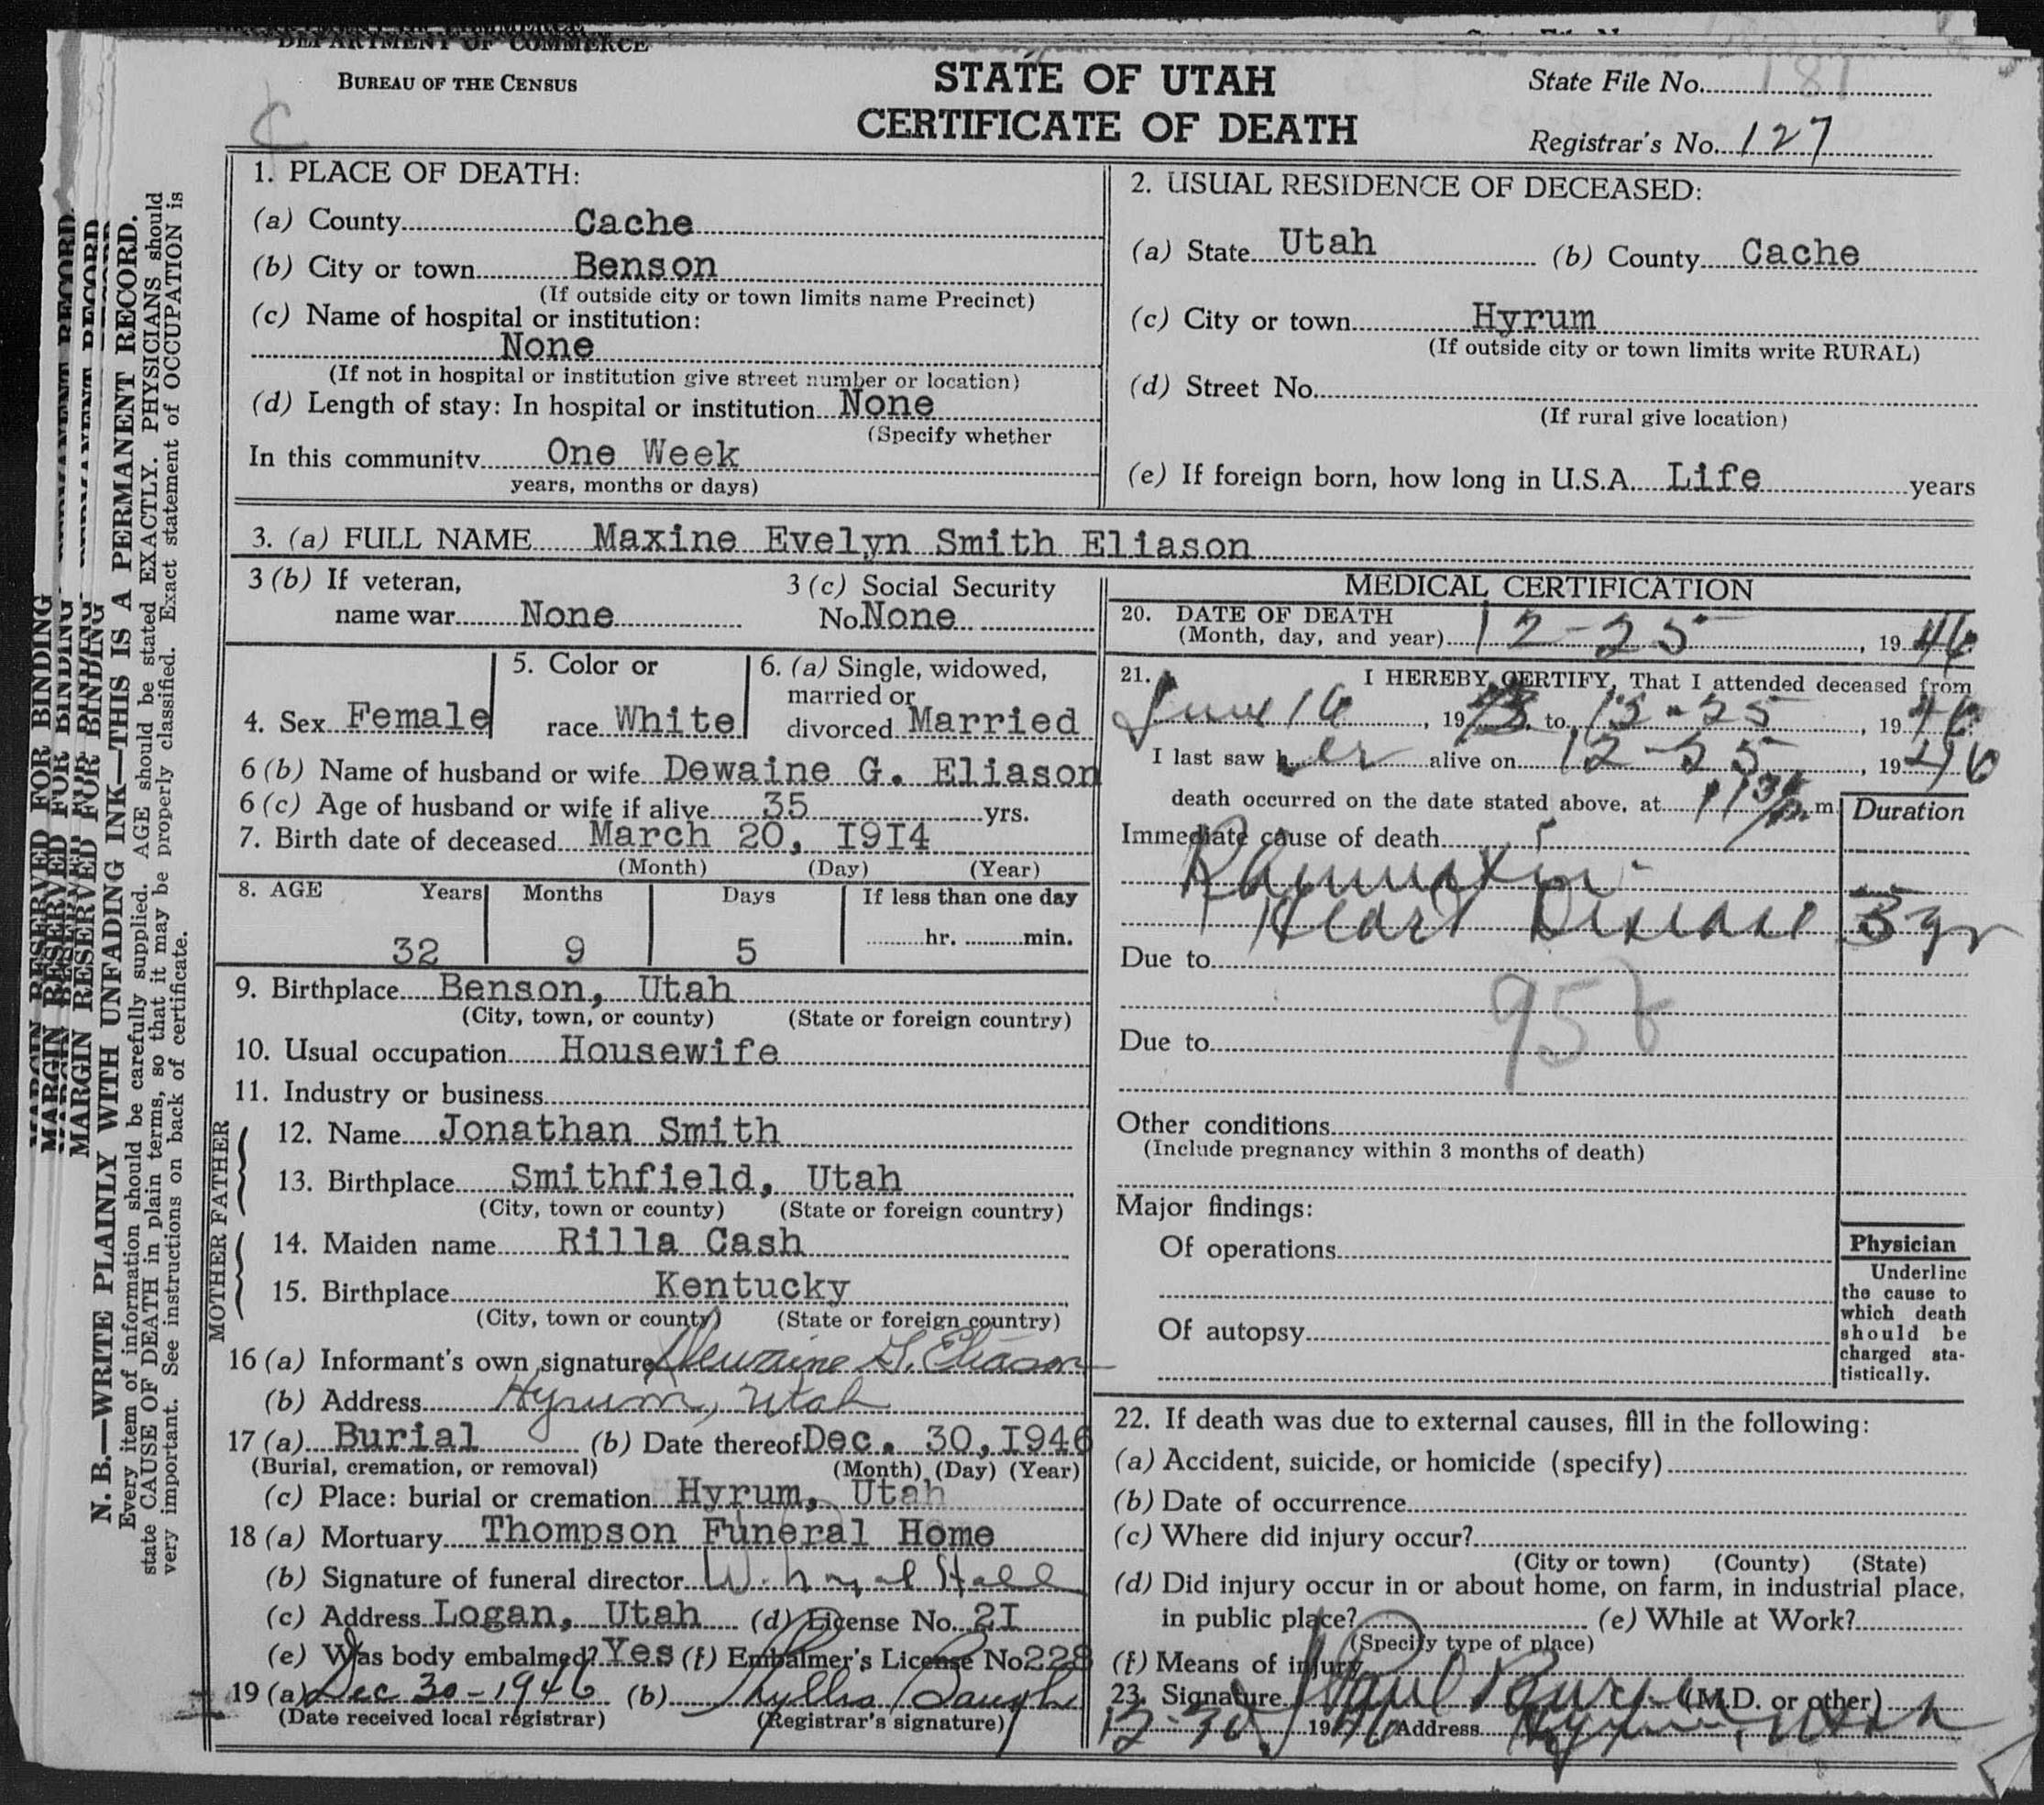 DEPARTMENT OF COMMERCE
BUREAU OF THE CENSUS
C
STATE OF UTAH
CERTIFICATE OF DEATH
State File No. 181
Registrar's No. 127
1. PLACE OF DEATH:
(a) County Cache
(b) City or town Benson
(If outside city or town limits name Precinct)
(c) Name of hospital or institution:
None
(If not in hospital or institution give street number or location)
(d) Length of stay: In hospital or institution None
(Specify whether
In this community One Week
years, months or days)
2. USUAL RESIDENCE OF DECEASED:
(a) State Utah (b) County Cache
(c) City or town Hyrum
(If outside city or town limits write RURAL)
(d) Street No.
(If rural give location)
(e) If foreign born, how long in U.S.A. Life years
3. (a) FULL NAME Maxine Evelyn Smith Eliason
3 (b) If veteran,
name war None
3 (c) Social Security
No. None
4. Sex Female
5. Color or
race White
6. (a) Single, widowed,
married or
divorced Married
6 (b) Name of husband or wife Dewaine G. Eliason
6 (c) Age of husband or wife if alive 35 yrs.
7. Birth date of deceased March 20, I9I4
(Month) (Day) (Year)
8. AGE Years Months Days If less than one day
32 9 5 hr. min.
9. Birthplace Benson, Utah
(City, town, or county) (State or foreign country)
10. Usual occupation Housewife
11. Industry or business
FATHER
12. Name Jonathan Smith
13. Birthplace Smithfield, Utah
(City, town or county) (State or foreign country)
MOTHER
14. Maiden name Rilla Cash
15. Birthplace Kentucky
(City, town or county) (State or foreign country)
16 (a) Informant's own signature Dewaine G. Eliason
(b) Address Hyrum, Utah
17 (a) Burial (b) Date thereof Dec. 30, I946
(Burial, cremation, or removal) (Month) (Day) (Year)
(c) Place: burial or cremation Hyrum, Utah
18 (a) Mortuary Thompson Funeral Home
(b) Signature of funeral director W. Hall
(c) Address Logan, Utah (d) License No. 2I
(e) Was body embalmed? Yes (f) Embalmer's License No. 228
19 (a) Dec 30-1946 (b) Phyllis
(Date received local registrar) (Registrar's signature)
MEDICAL CERTIFICATION
20. DATE OF DEATH
(Month, day, and year) 12-25, 1946
21. I HEREBY CERTIFY, That I attended deceased from
June 16, 19 to 12-25, 1946
I last saw her alive on 12-25, 1946
death occurred on the date stated above, at m.
Duration
Immediate cause of death
Rheumatic
Heart Disease 3 yr
Due to
95b
Due to
Other conditions
(Include pregnancy within 3 months of death)
Major findings:
Of operations
Of autopsy
Physician
Underline
the cause to
which death
should be
charged sta-
tistically.
22. If death was due to external causes, fill in the following:
(a) Accident, suicide, or homicide (specify)
(b) Date of occurrence
(c) Where did injury occur?
(City or town) (County) (State)
(d) Did injury occur in or about home, on farm, in industrial place,
in public place? (e) While at Work?
(Specify type of place)
(f) Means of injury
23. Signature Paul (M.D. or other)
12-30, 1946 Address Hyrum, Utah
MARGIN RESERVED FOR BINDING
N. B.—WRITE PLAINLY WITH UNFADING INK—THIS IS A PERMANENT RECORD.
Every item of information should be carefully supplied. AGE should be stated EXACTLY. PHYSICIANS should
state CAUSE OF DEATH in plain terms, so that it may be properly classified. Exact statement of OCCUPATION is
very important. See instructions on back of certificate.